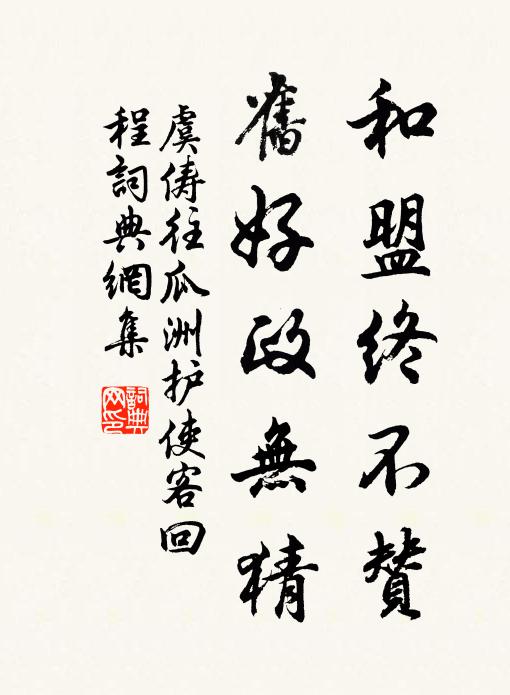 和盟终不賛
舊好政無猜
虞俦往瓜洲护使客回
程詞典網集
詞典网印